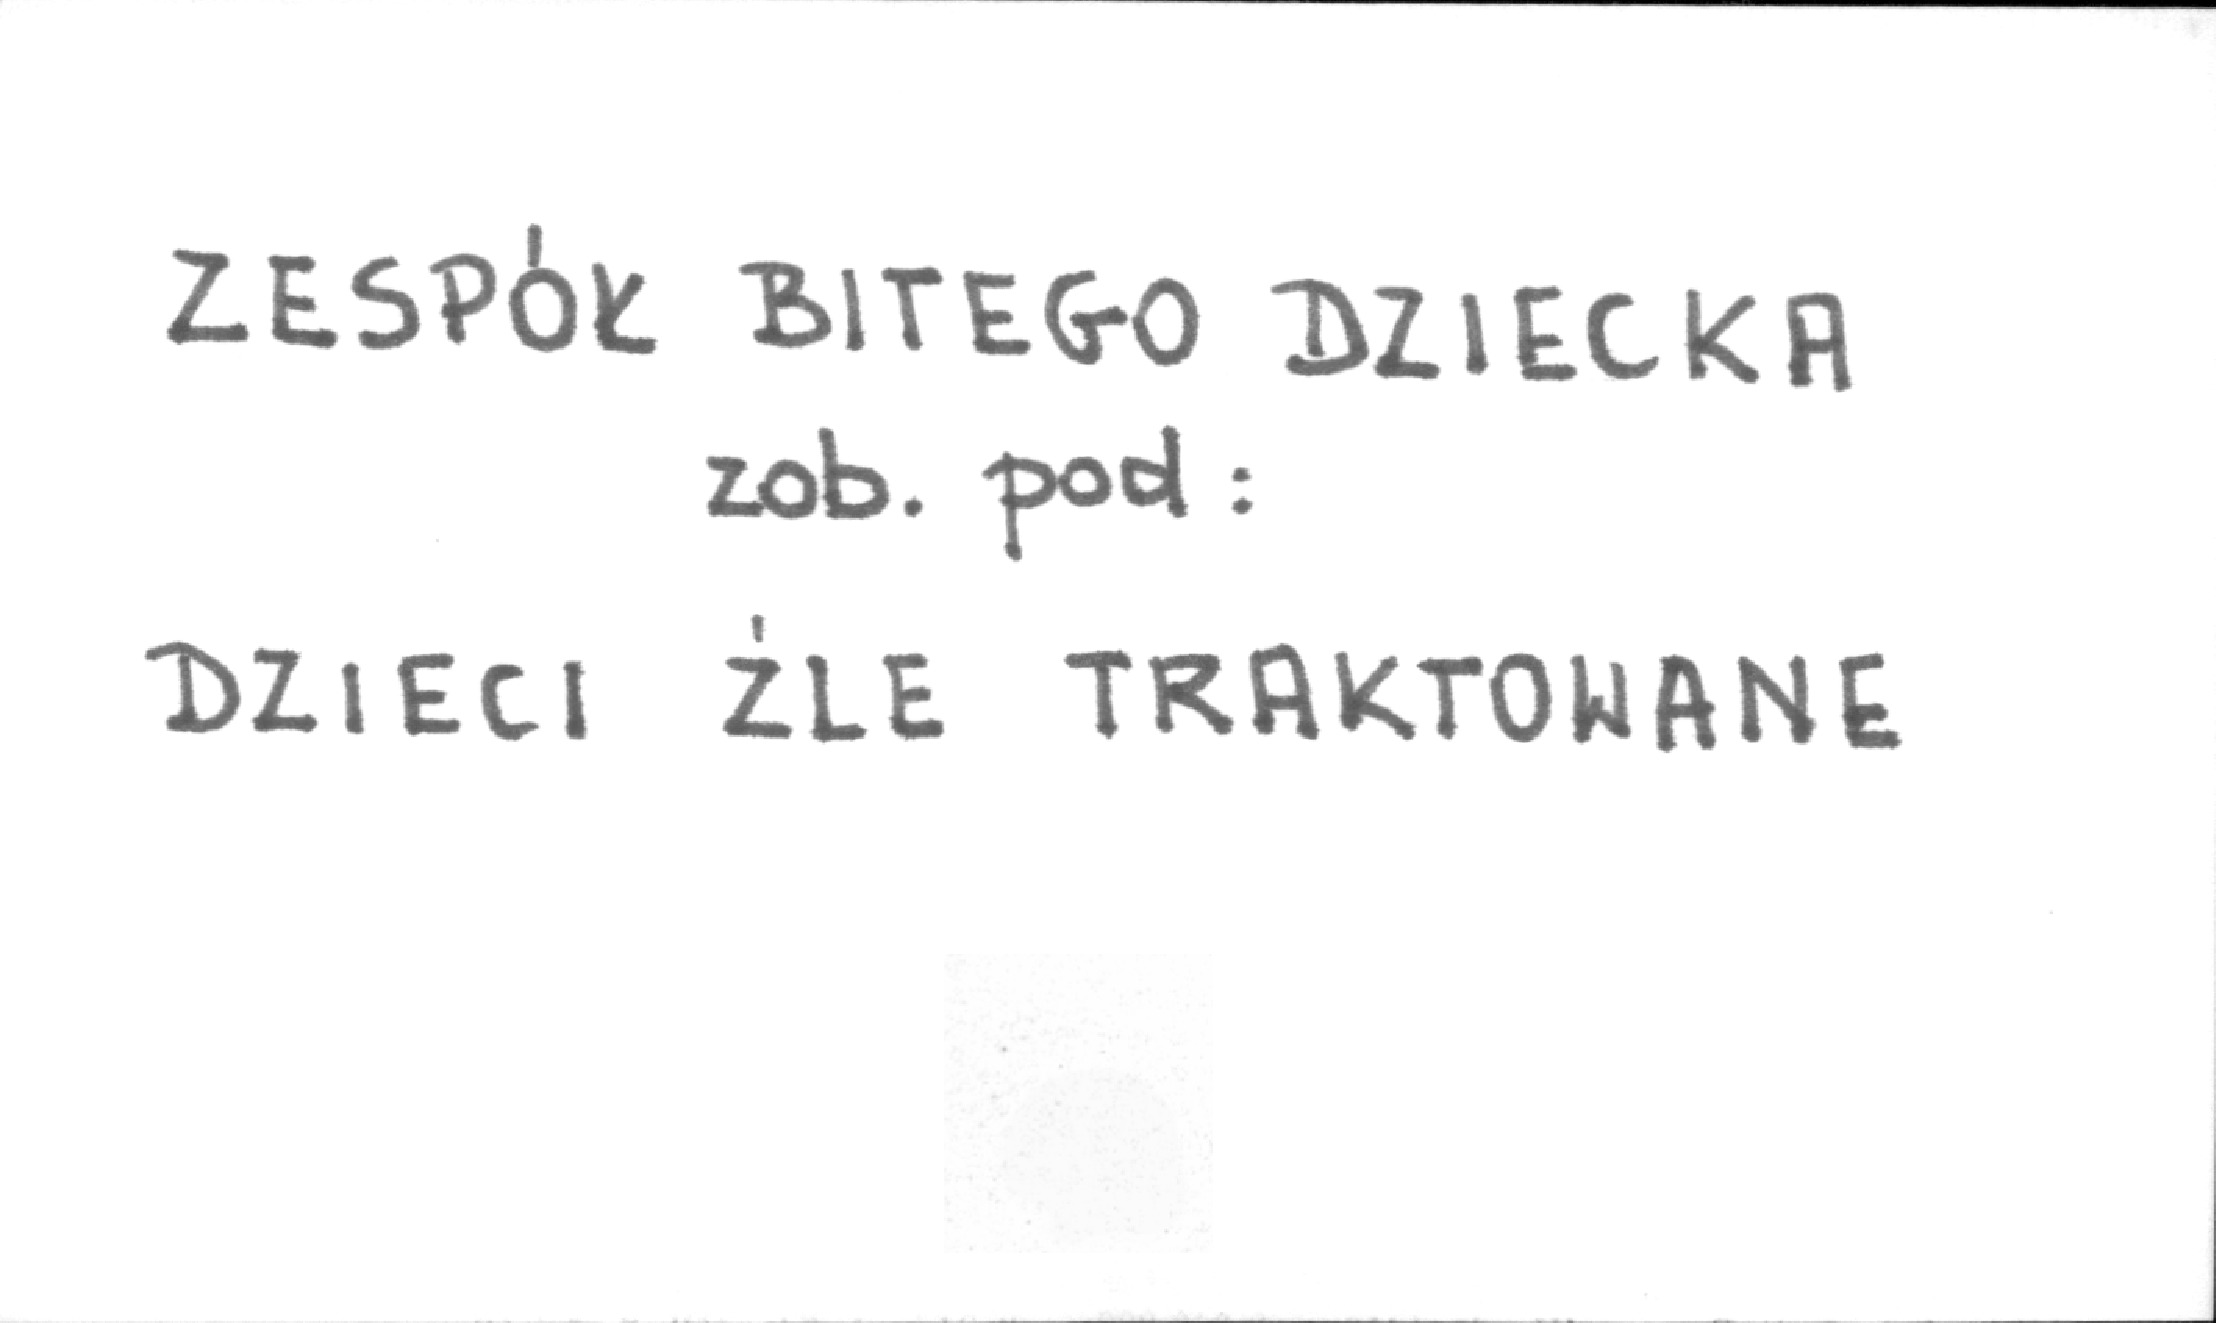 ZESPÓŁ BITEGO DZIECKA
zob. pod:
DZIECI ŹLE TRAKTOWANE